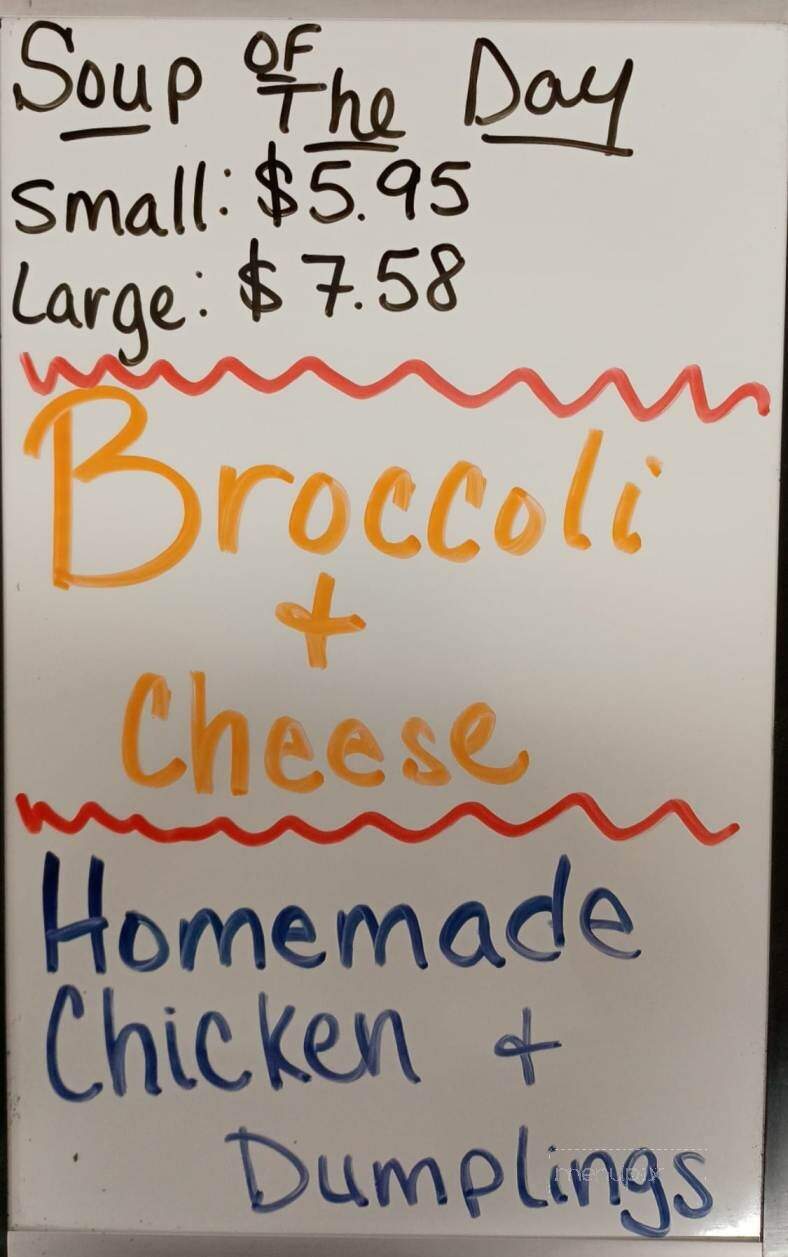 Soup OF The Day
Small: $5.95
Large: $7.58
Broccoli
+
Cheese
Homemade
Chicken +
Dumplings
menupix